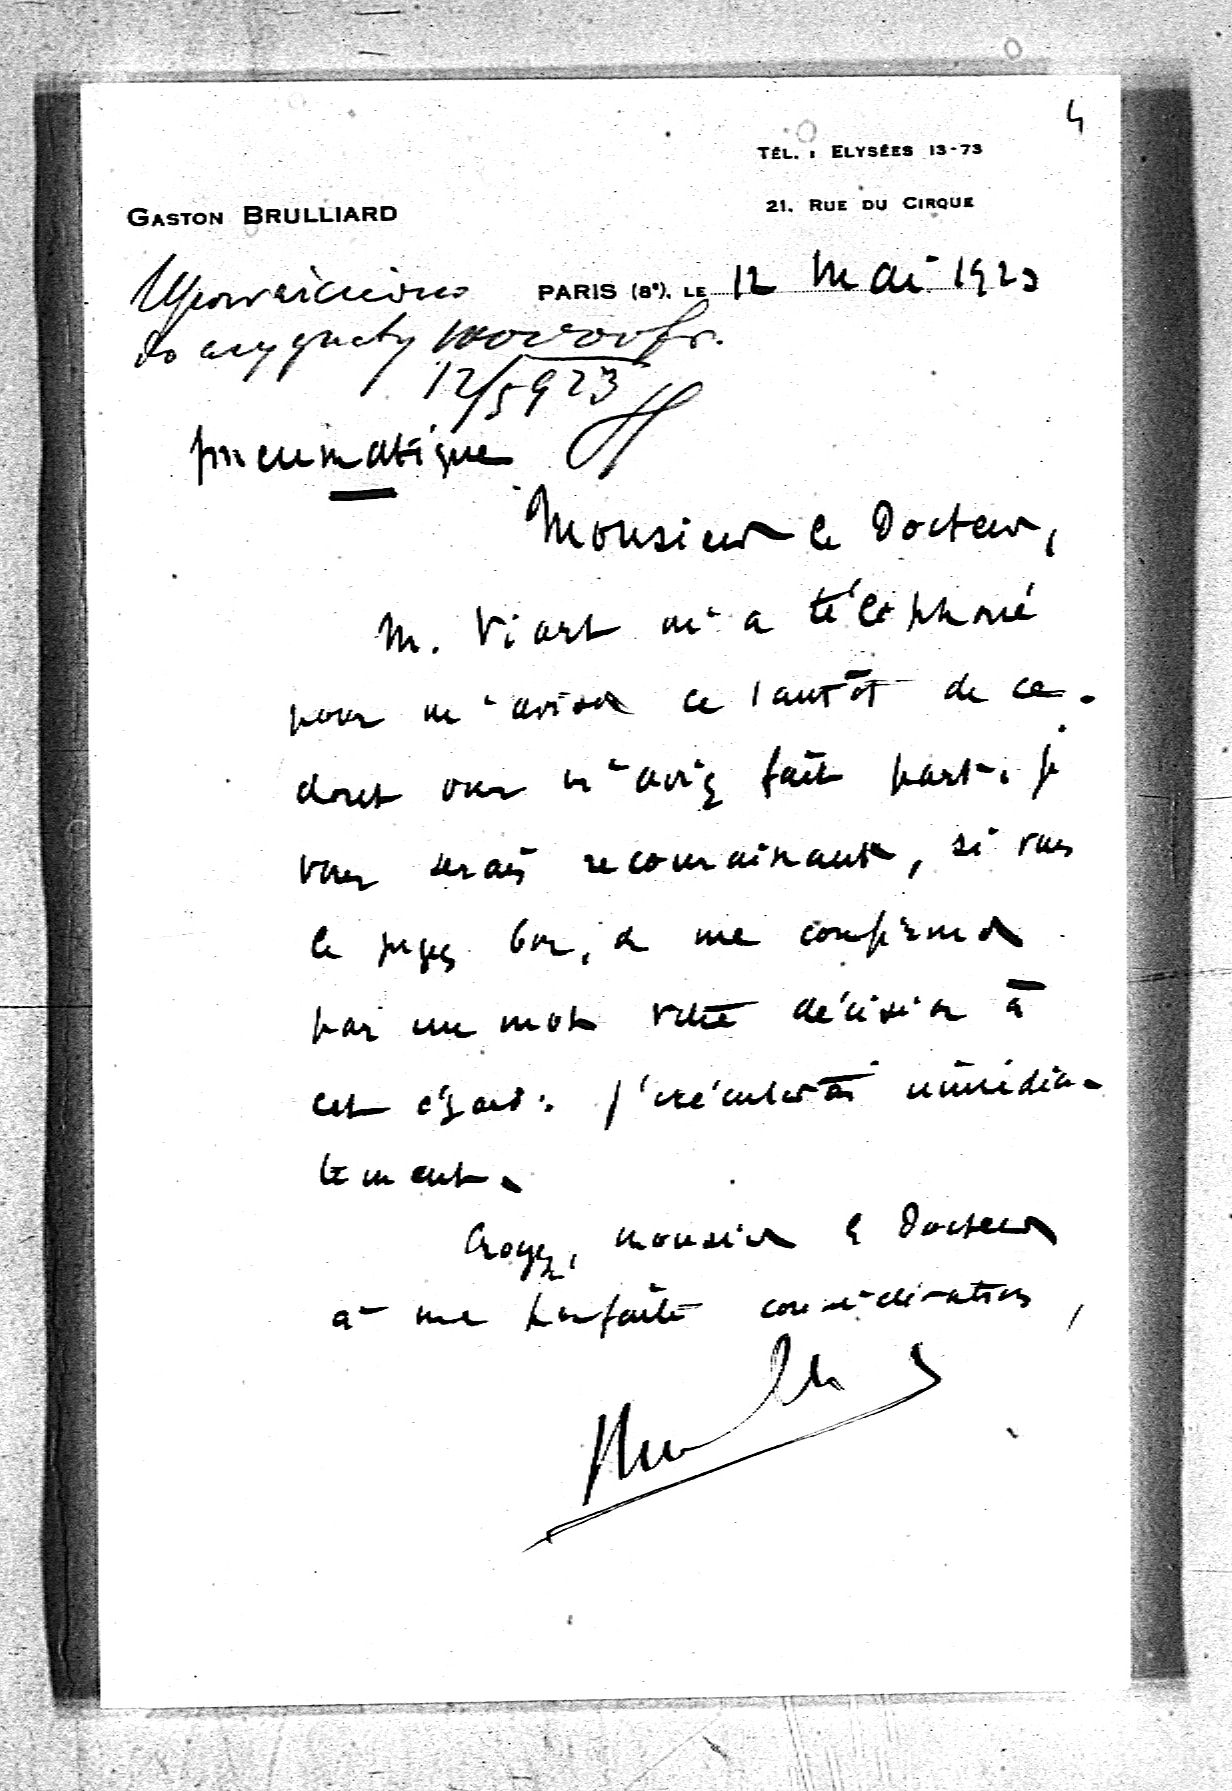 4
TÉL. : ELYSÉES 13-73
21. RUE DU CIRQUE
GASTON BRULLIARD
PARIS (8e), LE 12 Mai 1923
fr.
12/5 923
pneumatique
Monsieur le Docteur,
M. Viart m'a téléphoné
pour m'aviser ce tantôt de ce
dont vous m'aviez fait part. Je
vous serais reconnaissant, si vous
le jugez bon, de me confirmer
par un mot votre décision à
cet égard. J'exécuterai immédia-
tement.
Croyez, Monsieur le Docteur
à ma parfaite considération,